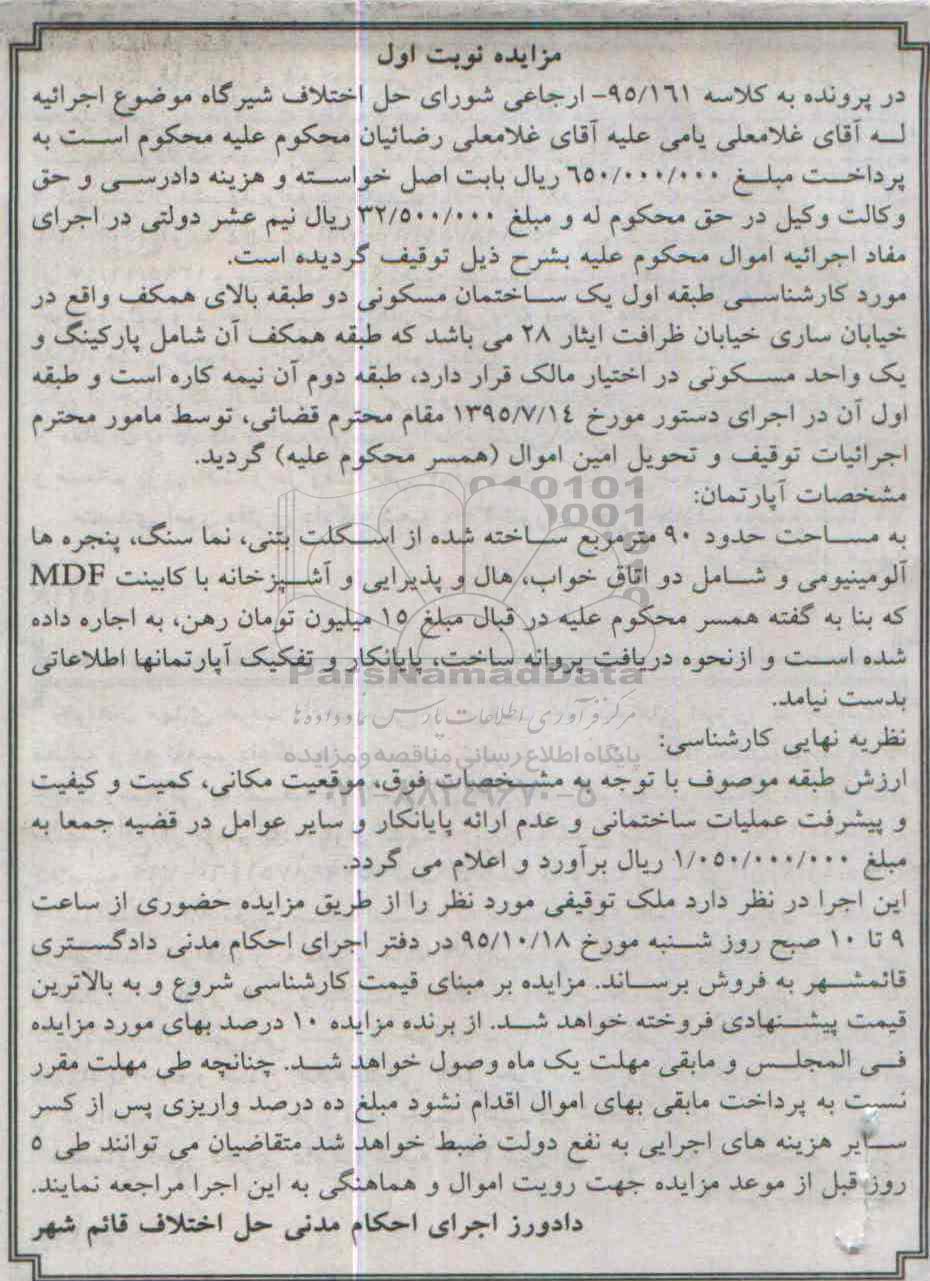 مزایده نوبت اول
در پرونده به کلاسه ۹۵/۱۶۱- ارجاعی شورای حل اختلاف شیرگاه موضوع اجرائیه
له آقای غلامعلی یامی علیه آقای غلامعلی رضائیان محکوم علیه محکوم است به
پرداخت مبلغ ۶۵۰/۰۰۰/۰۰۰ ریال بابت اصل خواسته و هزینه دادرسی و حق
وکالت وکیل در حق محکوم له و مبلغ ۳۲/۵۰۰/۰۰۰ ریال نیم عشر دولتی در اجرای
مفاد اجرائیه اموال محکوم علیه بشرح ذیل توقیف گردیده است.
مورد کارشناسی طبقه اول یک ساختمان مسکونی دو طبقه بالای همکف واقع در
خیابان ساری خیابان ظرافت ایثار ۲۸ می باشد که طبقه همکف آن شامل پارکینگ و
یک واحد مسکونی در اختیار مالک قرار دارد، طبقه دوم آن نیمه کاره است و طبقه
اول آن در اجرای دستور مورخ ۱۳۹۵/۷/۱۴ مقام محترم قضائی، توسط مامور محترم
اجرائیات توقیف و تحویل امین اموال (همسر محکوم علیه) گردید.
مشخصات آپارتمان:
به مساحت حدود ۹۰ مترمربع ساخته شده از اسکلت بتنی، نما سنگ، پنجره ها
آلومینیومی و شامل دو اتاق خواب، هال و پذیرایی و آشپزخانه با کابینت MDF
که بنا به گفته همسر محکوم علیه در قبال مبلغ ۱۵ میلیون تومان رهن، به اجاره داده
شده است و ازنحوه دریافت پروانه ساخت، پایانکار و تفکیک آپارتمانها اطلاعاتی
ParsNamadData
بدست نیامد.
مرکز فرآوری اطلاعات پارس نماد داده ها
نظریه نهایی کارشناسی:
پایگاه اطلاع رسانی مناقصه و مزایده
ارزش طبقه موصوف با توجه به مشخصات فوق، موقعیت مکانی، کمیت و کیفیت
۰۲۱-۸۸۳۴۹۶۷۰-۵
و پیشرفت عملیات ساختمانی و عدم ارائه پایانکار و سایر عوامل در قضیه جمعا به
مبلغ ۱/۰۵۰/۰۰۰/۰۰۰ ریال برآورد و اعلام می گردد.
این اجرا در نظر دارد ملک توقیفی مورد نظر را از طریق مزایده حضوری از ساعت
۹ تا ۱۰ صبح روز شنبه مورخ ۹۵/۱۰/۱۸ در دفتر اجرای احکام مدنی دادگستری
قائمشهر به فروش برساند. مزایده بر مبنای قیمت کارشناسی شروع و به بالاترین
قیمت پیشنهادی فروخته خواهد شد. از برنده مزایده ۱۰ درصد بهای مورد مزایده
فی المجلس و مابقی مهلت یک ماه وصول خواهد شد. چنانچه طی مهلت مقرر
نسبت به پرداخت مابقی بهای اموال اقدام نشود مبلغ ده درصد واریزی پس از کسر
سایر هزینه های اجرایی به نفع دولت ضبط خواهد شد متقاضیان می توانند طی ۵
روز قبل از موعد مزایده جهت رویت اموال و هماهنگی به این اجرا مراجعه نمایند.
دادورز اجرای احکام مدنی حل اختلاف قائم شهر